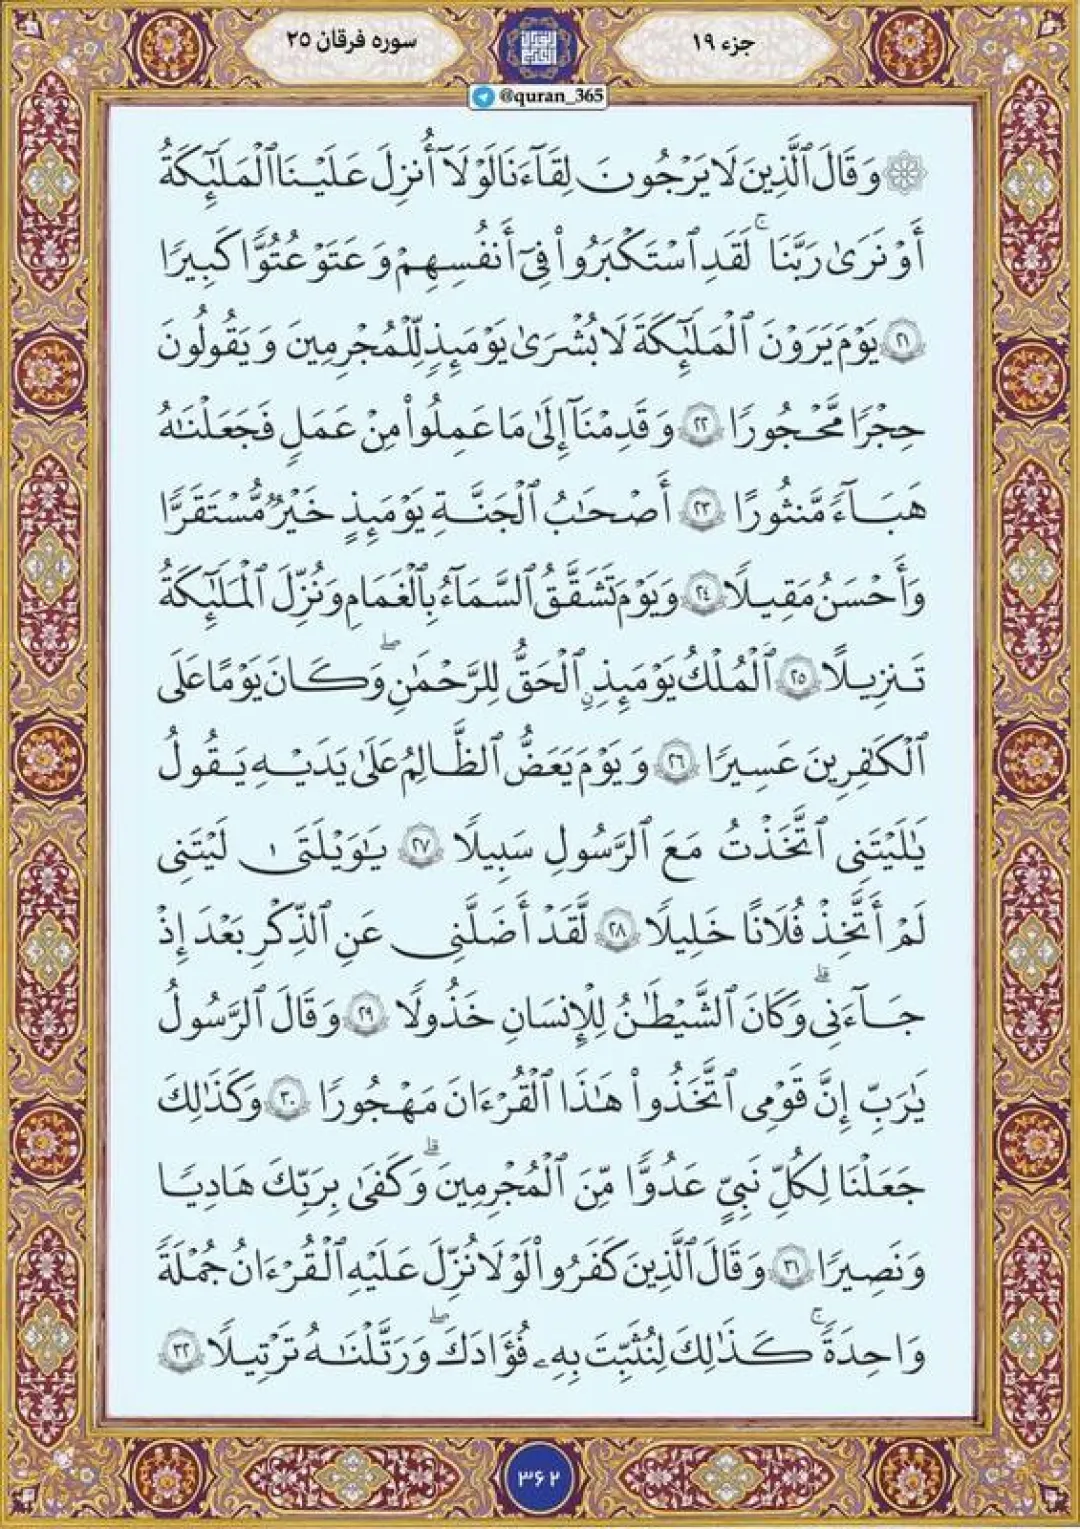 جزء ۱۹
سوره فرقان ۲۵
@quran_365
وَقَالَ ٱلَّذِينَ لَا يَرْجُونَ لِقَآءَنَا لَوْلَآ أُنزِلَ عَلَيْنَا ٱلْمَلَـٰٓئِكَةُ
أَوْ نَرَىٰ رَبَّنَا ۚ لَقَدِ ٱسْتَكْبَرُوا۟ فِىٓ أَنفُسِهِمْ وَعَتَوْ عُتُوًّا كَبِيرًا
۲۱ يَوْمَ يَرَوْنَ ٱلْمَلَـٰٓئِكَةَ لَا بُشْرَىٰ يَوْمَئِذٍ لِّلْمُجْرِمِينَ وَيَقُولُونَ
حِجْرًا مَّحْجُورًا ۲۲ وَقَدِمْنَآ إِلَىٰ مَا عَمِلُوا۟ مِنْ عَمَلٍ فَجَعَلْنَـٰهُ
هَبَآءً مَّنثُورًا ۲۳ أَصْحَـٰبُ ٱلْجَنَّةِ يَوْمَئِذٍ خَيْرٌ مُّسْتَقَرًّا
وَأَحْسَنُ مَقِيلًا ۲۴ وَيَوْمَ تَشَقَّقُ ٱلسَّمَآءُ بِٱلْغَمَـٰمِ وَنُزِّلَ ٱلْمَلَـٰٓئِكَةُ
تَنزِيلًا ۲۵ ٱلْمُلْكُ يَوْمَئِذٍ ٱلْحَقُّ لِلرَّحْمَـٰنِ ۖ وَكَانَ يَوْمًا عَلَى
ٱلْكَـٰفِرِينَ عَسِيرًا ۲۶ وَيَوْمَ يَعَضُّ ٱلظَّالِمُ عَلَىٰ يَدَيْهِ يَقُولُ
يَـٰلَيْتَنِى ٱتَّخَذْتُ مَعَ ٱلرَّسُولِ سَبِيلًا ۲۷ يَـٰوَيْلَتَىٰ لَيْتَنِى
لَمْ أَتَّخِذْ فُلَانًا خَلِيلًا ۲۸ لَّقَدْ أَضَلَّنِى عَنِ ٱلذِّكْرِ بَعْدَ إِذْ
جَآءَنِى ۗ وَكَانَ ٱلشَّيْطَـٰنُ لِلْإِنسَـٰنِ خَذُولًا ۲۹ وَقَالَ ٱلرَّسُولُ
يَـٰرَبِّ إِنَّ قَوْمِى ٱتَّخَذُوا۟ هَـٰذَا ٱلْقُرْءَانَ مَهْجُورًا ۳۰ وَكَذَٰلِكَ
جَعَلْنَا لِكُلِّ نَبِىٍّ عَدُوًّا مِّنَ ٱلْمُجْرِمِينَ ۗ وَكَفَىٰ بِرَبِّكَ هَادِيًا
وَنَصِيرًا ۳۱ وَقَالَ ٱلَّذِينَ كَفَرُوا۟ لَوْلَا نُزِّلَ عَلَيْهِ ٱلْقُرْءَانُ جُمْلَةً
وَٰحِدَةً ۚ كَذَٰلِكَ لِنُثَبِّتَ بِهِۦ فُؤَادَكَ ۖ وَرَتَّلْنَـٰهُ تَرْتِيلًا ۳۲
۳۶۲